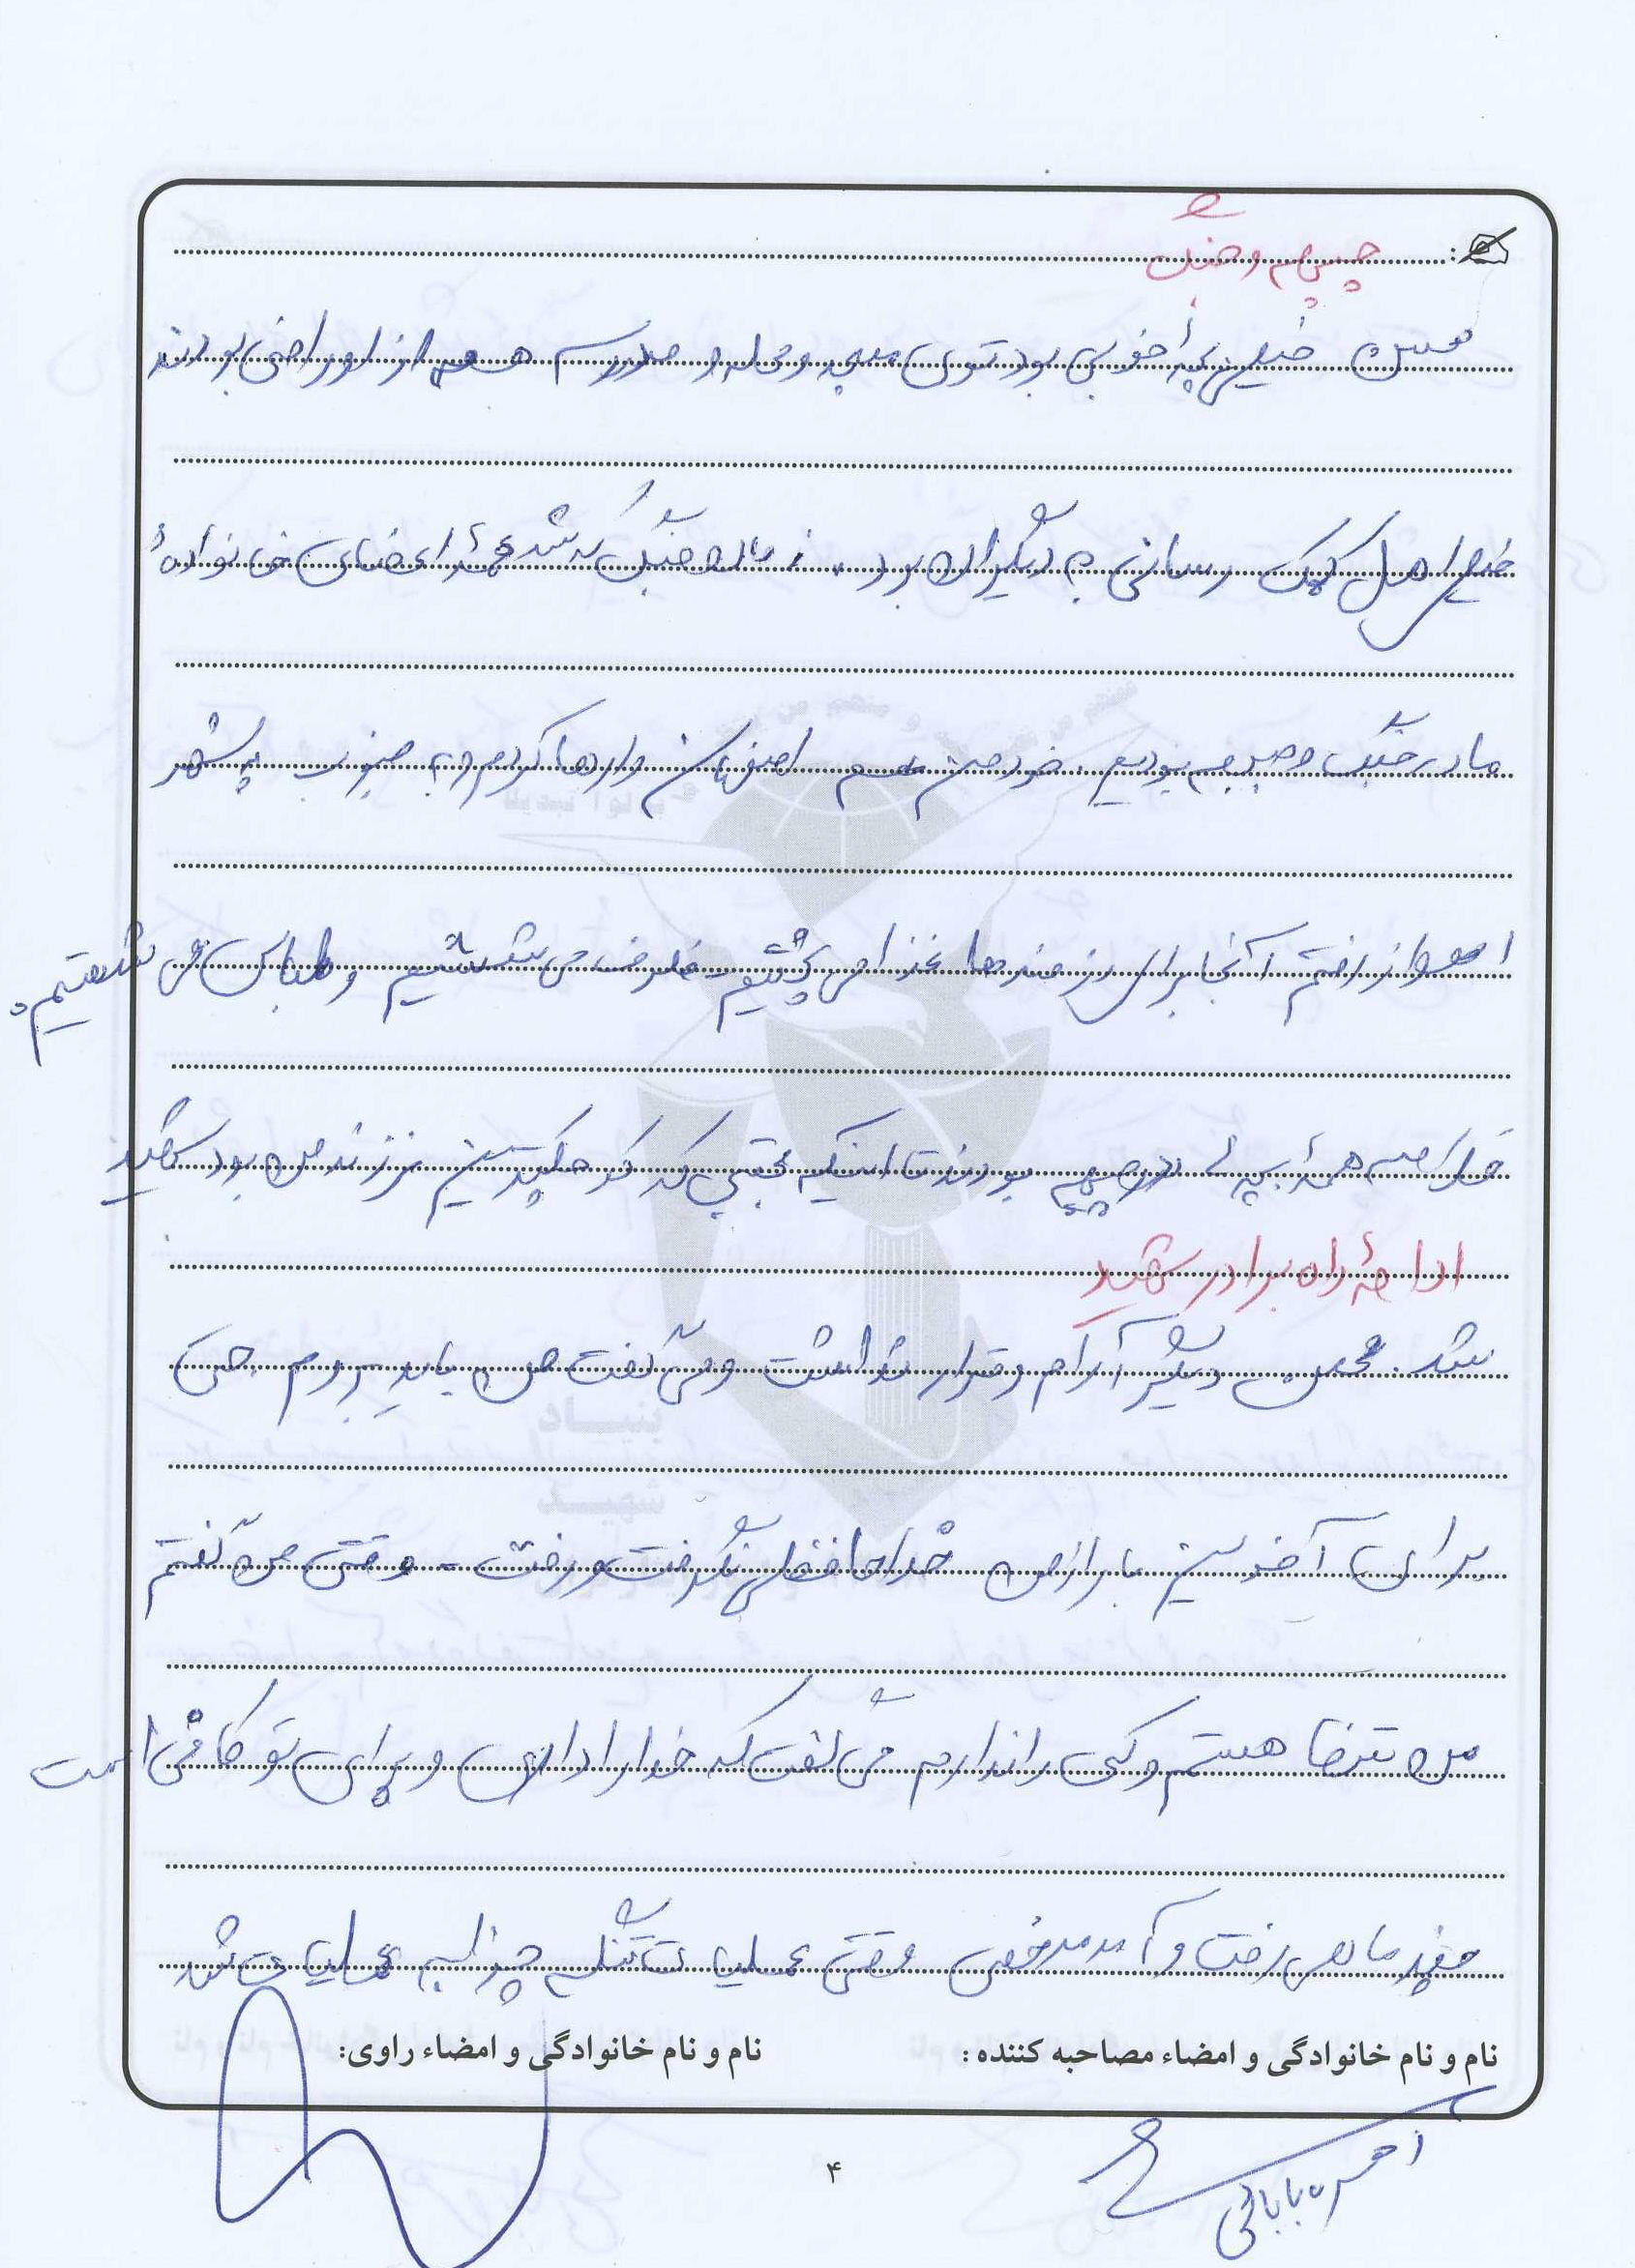 جبهه و جنگ
محسن خیلی بچهٔ خوبی بود توی مسجد و محله و مدرسه همه از او راضی بودند
خیلی اهل کمک رسانی به دیگران بود. زمان جنگ که شد همهٔ اعضای خانوادهٔ
ما در جنگ و جبهه بودیم. خود من هم اصفهان را رها کردم و به جنوب به شهر
اهواز رفتم آنجا برای رزمنده‌ها غذا می پختیم ظرف می شستیم و لباس می شستیم.
خلاصه همهٔ بچه ها در جبهه بودند تا اینکه مجتبی که کوچکترین فرزند من بود شهید
ادامهٔ راه برادر شهید
شد. محسن دیگر آرام و قرار نداشت و می گفت من باید بروم حتی
برای آخرین بار از من خداحافظی نگرفت و رفت. وقتی من گفتم
من تنها هستم و کسی را ندارم می گفت که خدا را داری و برای تو کافی است
چند ماهی رفت و آمد مرخصی وقتی عملیات تمام می شد
نام و نام خانوادگی و امضاء مصاحبه کننده : نام و نام خانوادگی و امضاء راوی:
بابائی
۴
بنیاد
شهید